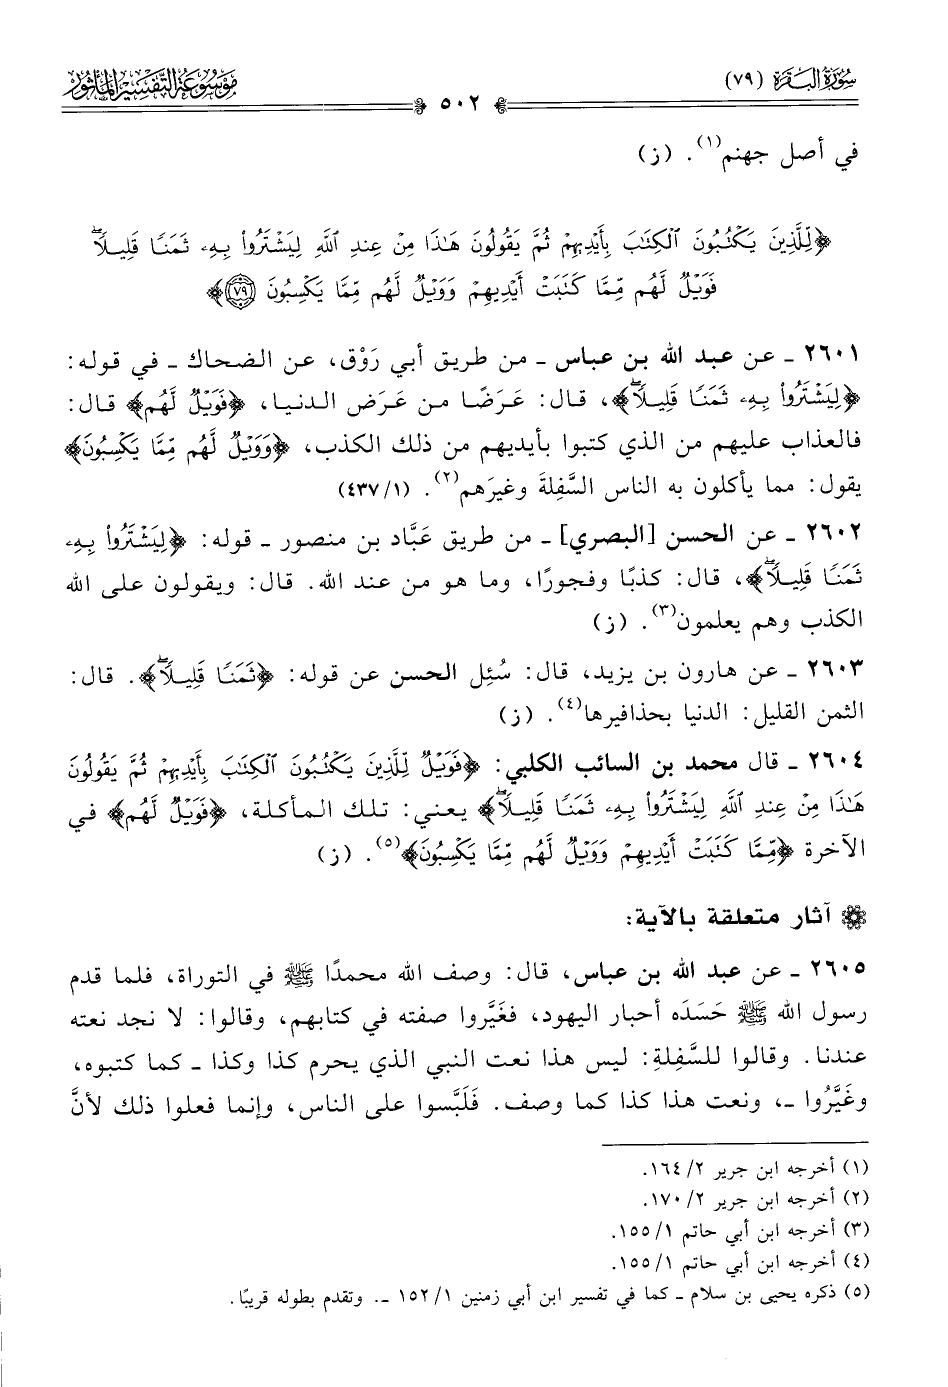 سورة البقرة (٧٩)
٥٠٢
موسوعة التفسير المأثور
في أصل جهنم(١). (ز)
﴿لِّلَّذِينَ يَكْتُبُونَ الْكِتَابَ بِأَيْدِيهِمْ ثُمَّ يَقُولُونَ هَٰذَا مِنْ عِندِ اللَّهِ لِيَشْتَرُوا بِهِ ثَمَنًا قَلِيلًا ۖ
فَوَيْلٌ لَّهُم مِّمَّا كَتَبَتْ أَيْدِيهِمْ وَوَيْلٌ لَّهُم مِّمَّا يَكْسِبُونَ ٧٩﴾
٢٦٠١ ـ عن عبد الله بن عباس ـ من طريق أبي رَوْق، عن الضحاك ـ في قوله:
﴿لِيَشْتَرُوا بِهِ ثَمَنًا قَلِيلًا ۖ﴾، قال: عَرَضًا من عَرَض الدنيا، ﴿فَوَيْلٌ لَهُم﴾ قال:
فالعذاب عليهم من الذي كتبوا بأيديهم من ذلك الكذب، ﴿وَوَيْلٌ لَهُم مِّمَّا يَكْسِبُونَ﴾
يقول: مما يأكلون به الناس السَّفِلةَ وغيرَهم(٢). (٤٣٧/١)
٢٦٠٢ ـ عن الحسن [البصري] ـ من طريق عَبَّاد بن منصور ـ قوله: ﴿لِيَشْتَرُوا بِهِ
ثَمَنًا قَلِيلًا ۖ﴾، قال: كذبًا وفجورًا، وما هو من عند الله. قال: ويقولون على الله
الكذب وهم يعلمون(٣). (ز)
٢٦٠٣ ـ عن هارون بن يزيد، قال: سُئِل الحسن عن قوله: ﴿ثَمَنًا قَلِيلًا ۖ﴾. قال:
الثمن القليل: الدنيا بحذافيرها(٤). (ز)
٢٦٠٤ ـ قال محمد بن السائب الكلبي: ﴿فَوَيْلٌ لِّلَّذِينَ يَكْتُبُونَ الْكِتَابَ بِأَيْدِيهِمْ ثُمَّ يَقُولُونَ
هَٰذَا مِنْ عِندِ اللَّهِ لِيَشْتَرُوا بِهِ ثَمَنًا قَلِيلًا ۖ﴾ يعني: تلك المأكلة، ﴿فَوَيْلٌ لَهُم﴾ في
الآخرة ﴿مِّمَّا كَتَبَتْ أَيْدِيهِمْ وَوَيْلٌ لَّهُم مِّمَّا يَكْسِبُونَ﴾(٥). (ز)
آثار متعلقة بالآية:
٢٦٠٥ ـ عن عبد الله بن عباس، قال: وصف الله محمدًا ﷺ في التوراة، فلما قدم
رسول الله ﷺ حَسَدَه أحبار اليهود، فغَيَّروا صفته في كتابهم، وقالوا: لا نجد نعته
عندنا. وقالوا للسَّفِلةِ: ليس هذا نعت النبي الذي يحرم كذا وكذا ـ كما كتبوه،
وغَيَّرُوا ـ، ونعت هذا كذا كما وصف. فَلَبَّسوا على الناس، وإنما فعلوا ذلك لأنَّ
(١) أخرجه ابن جرير ٢/ ١٦٤.
(٢) أخرجه ابن جرير ٢/ ١٧٠.
(٣) أخرجه ابن أبي حاتم ١/ ١٥٥.
(٤) أخرجه ابن أبي حاتم ١/ ١٥٥.
(٥) ذكره يحيى بن سلام ـ كما في تفسير ابن أبي زمنين ١/ ١٥٢ ـ. وتقدم بطوله قريبًا.